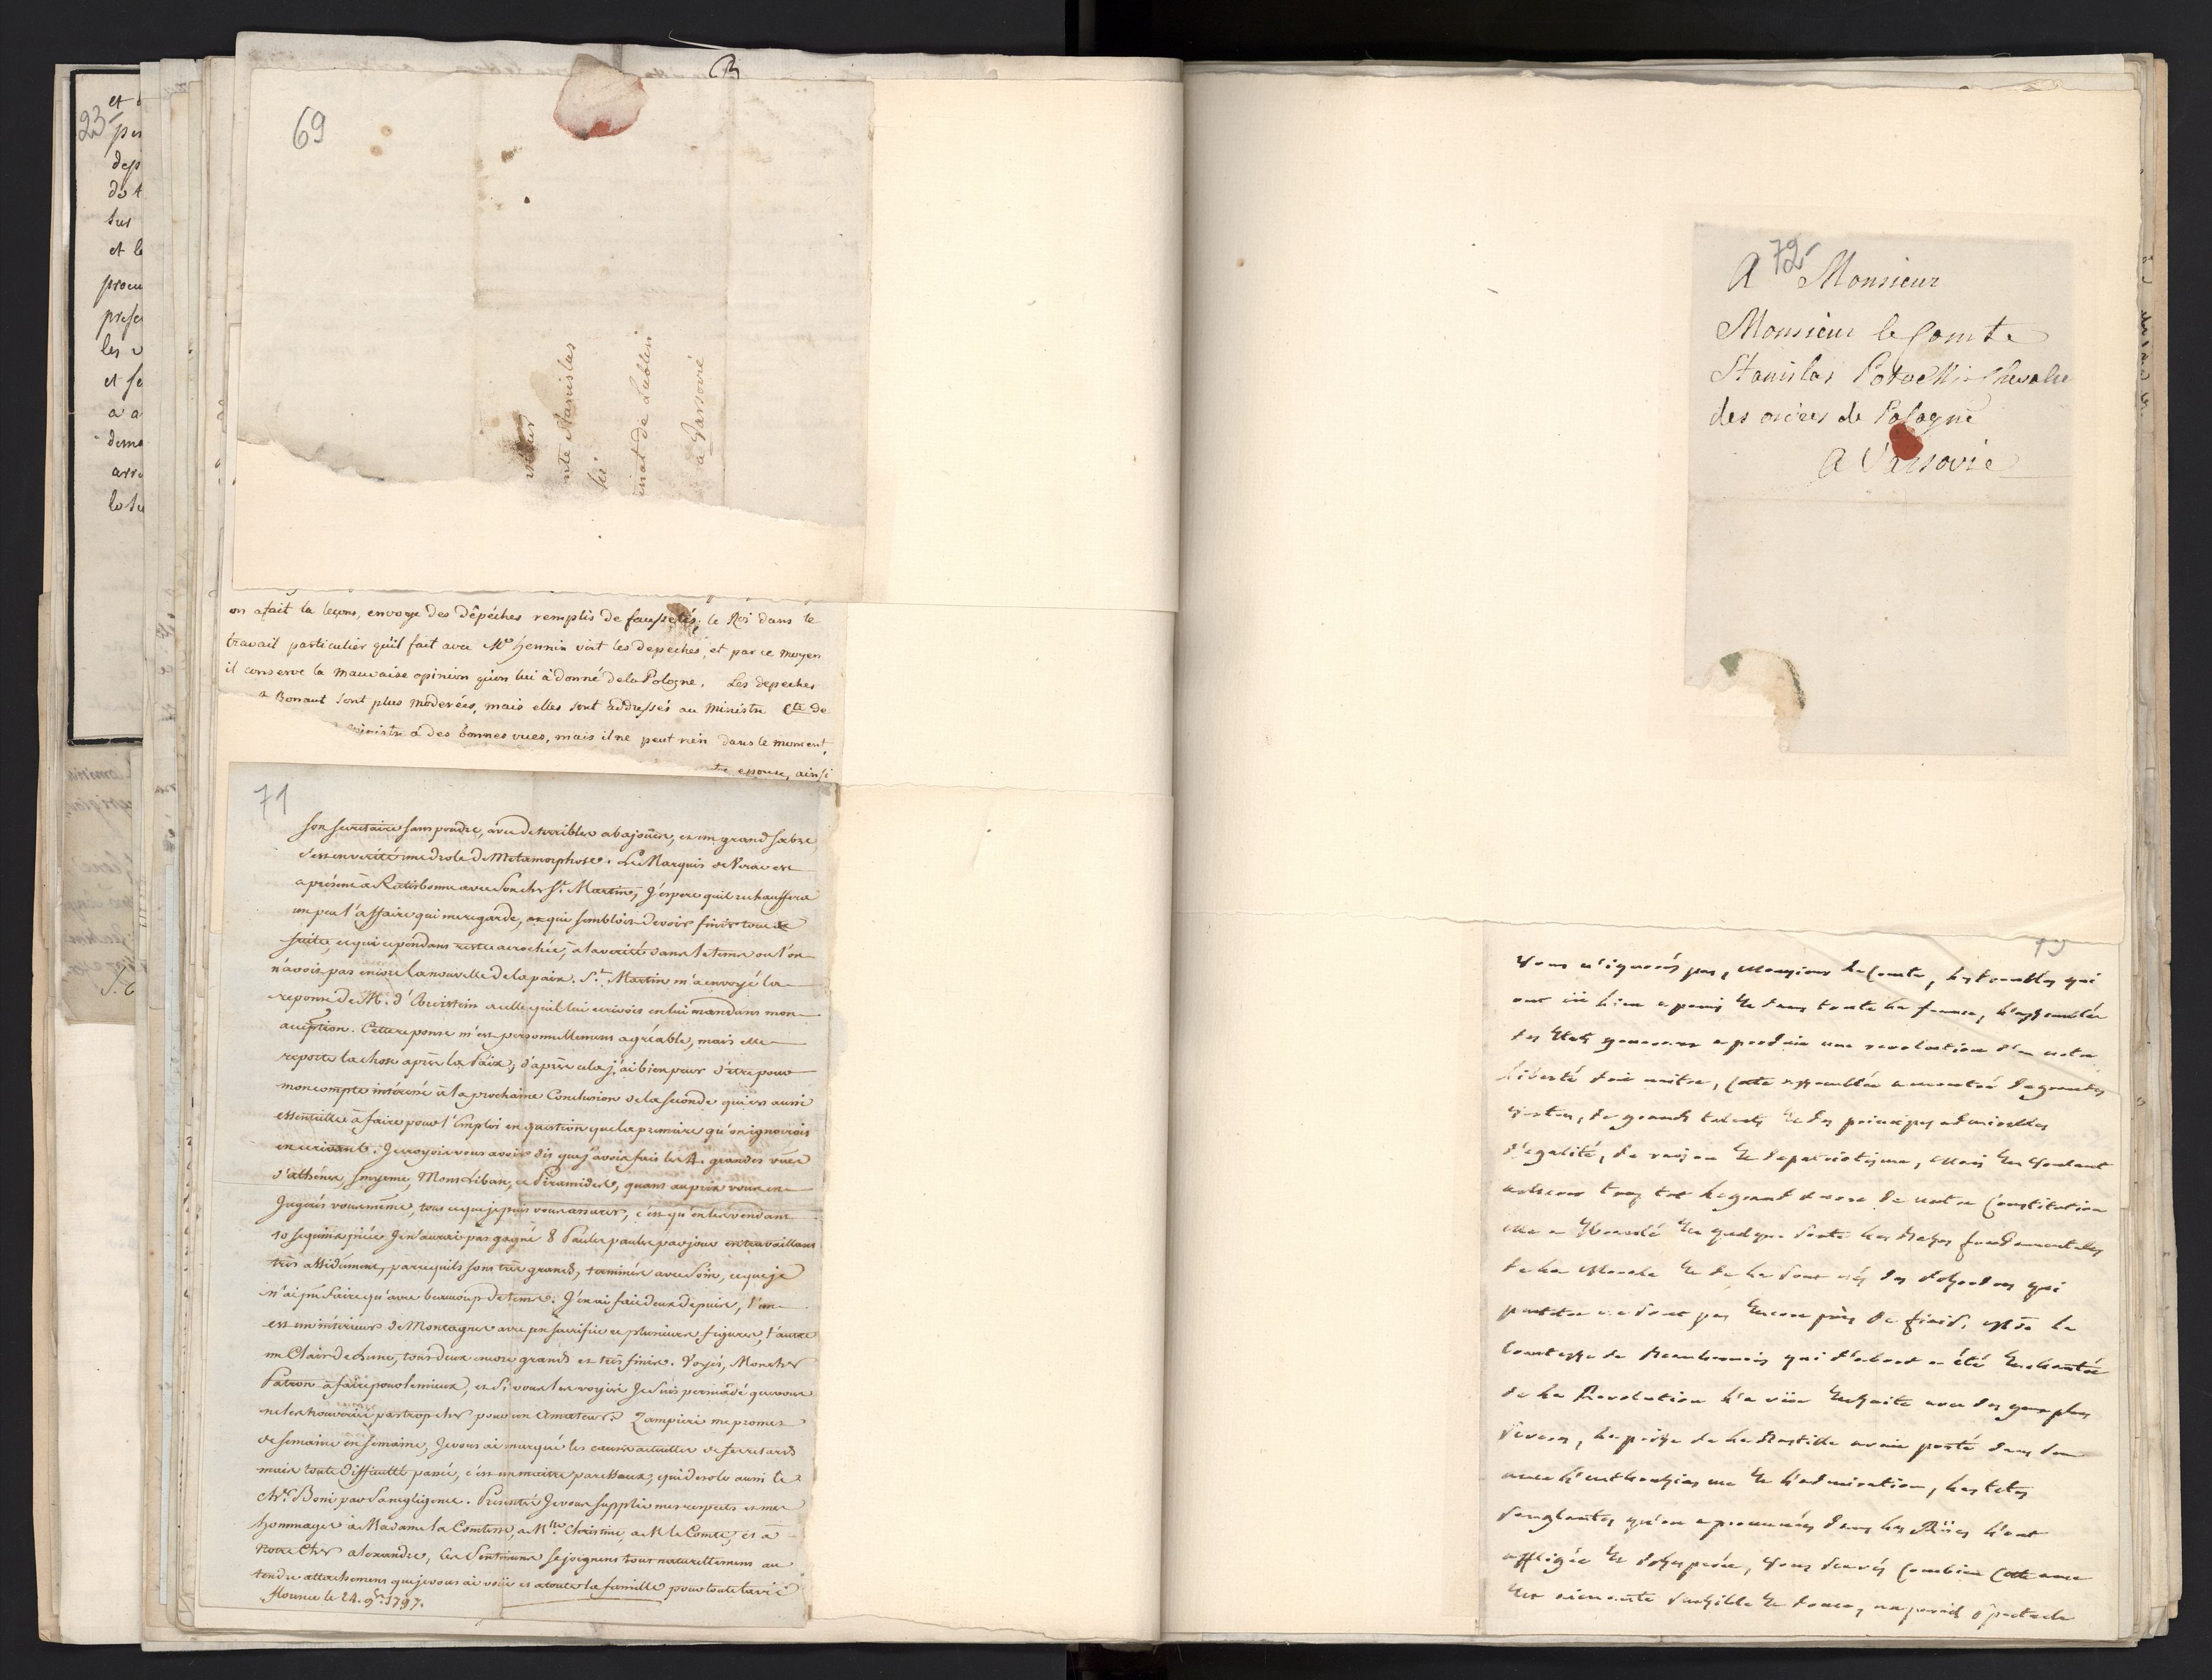 B
23
et
per
dep
du
sur
et le
procu
prese
les
et se
a a
dema
arre
69
nte Stanislas
inat de Lublin
à Varsovie
on a fait la leçons, envoye des dêpéches remplis de faussetés; le Roi dans le
travail particulier qu'il fait avec Mr Hennin voit les depeches, et par ce moyen
il conserve la mauvaise opinion qu'on lui à donné de la Pologne. Les depeches
a Bonaut sont plus moderées, mais elles sont addressés au Ministre Cte de
ministre a des bonnes vues, mais il ne peut rien dans le moment,
tre epouse, ainsi
71
son secretaire sans poudre, avec de terribles abajoües, et un grand sabre,
c'est en verité une drole de Metamorphose. Le Marquis de Verac est
a présent à Ratisbonne avec son cher St Martin, j'espere qu'il rechauffera
un peu l'affaire qui me regarde, et qui sembloit devoir finir tout de
suite, et qui cependant reste acrochée, à la verité dans le tems ou l'on
n'avoit pas encore la nouvelle de la paix. St Martin m'a envoyé la
reponse de M. d' a celle qu'il lui ecrivoit en lui mandant mon
acception. Cette reponse m'est personnellement agréable, mais elle
reporte la chose après la Paix, d'après cela j'ai bien peur d'etre pour
mon compte intéressé à la prochaine Conclusion de la seconde qui est aussi
essentielle à faire pour l'Emploi en question que la premiere qu'on ignoroit
en ecrivant. Je croyois vous avoir dit que j'avois fait les 4. grandes vües
d'athénes, Smyrne, Mont Liban, et Piramides, quant au prix vous en
Jugerés vous même, tout ce que je puis vous assurer, c'est qu'en les vendant
10 sequins piéce Je n'aurai pas gagné 8 Paules par jour en travaillant
très assidument, parcequ'ils sont très grands, terminés avec soin, ce que je
n'ai pu faire qu'avec beaucoup de tems. J'en ai fait deux depuis, l'un
est un intérieur de Montagnes avec un sacrifice et plusieurs figures, l'autre
un Clair de Lune, tous deux encore grands et très finis. Voyés, Mon cher
Patron à faire pour le mieux, et si vous les voyiés Je suis persuadé que vous
ne les trouveriés pas trop cher pour un Amateur. Zampieri me promet
de semaine en semaine, Je vous ai marqué les causes actuelles de ses retards
mais toute difficulté passée, c'est un maitre paresseux, qui desole aussi le
Chr. Boni par sa négligence. Présentés Je vous supplie mes respects et mes
hommages à Madame la Comtesse, a Mlle Christine, a M le Comte, et à
Notre Cher alexandre, ces Sentimens se joignent tout naturellement au
tendre attachement que je vous ai voüé et a toute la famille pour toute la vie
Florence le 24. 9bre 1797.
72
A Monsieur
Monsieur le Comte
Stanislas Potocki Chevalier
des ordres de Pologne
A Varsovie
Vous n'ignorés pas, Monsieur le Comte, les troubles qui
ont eü lieu a paris et dans toute la france, l'assemblée
des Etats generaux a produit une revolution d'ou notre
liberté doit naitre, Cette assemblée a montré de grandes
vertus, de grands talents et des principes admirables
d'egalité, de raison et de patriotisme, Mais en voulant
achever trop tot le grand œuvre de notre Constitution
elle a Ebranlé en quelque sorte les bases fondamentales
de la Morale et de la sont nés des desordres qui
peutetre ne sont pas encore près de finir. Mde la
Comtesse de Beauharnois qui d'abord a été Enchantée
de la Revolution l'a vüe Ensuite avec des yeux plus
severes, la prise de la Bastille avoit porté dans son
ame l'enthousiasme et l'admiration, les tetes
sanglantes qu'on a promenées dans les Rües l'ont
affligée et desesperée, Vous savés Combien Cette ame
Est aimante sensible et douce, un pareil spectacle